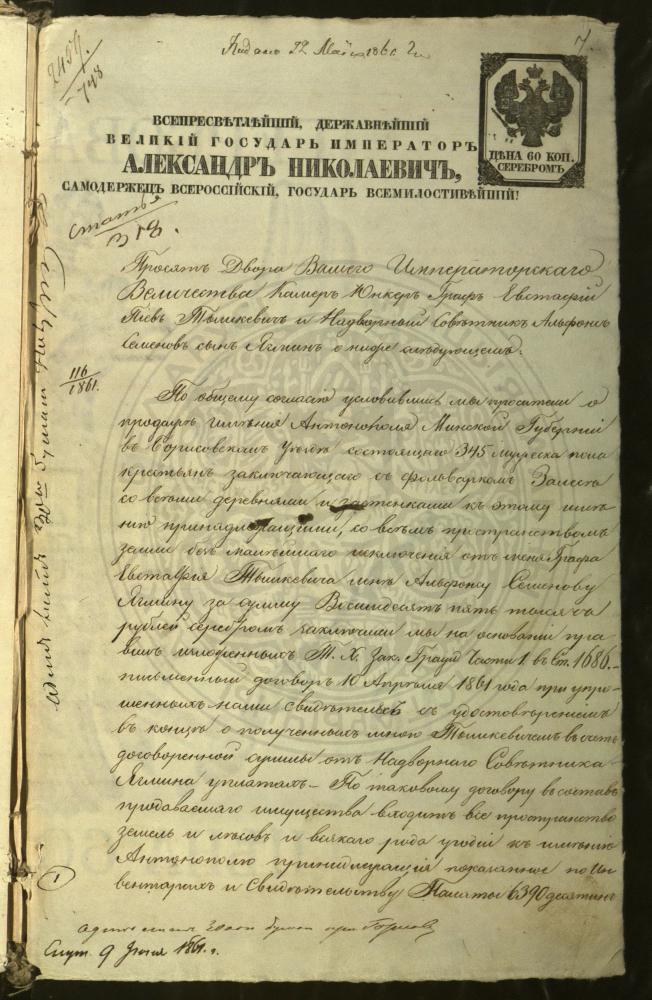 Подано 22 Мая 1861 г.
7
2457.
748
ЦѢНА 60 КОП.
СЕРЕБРОМЪ
ВСЕПРЕСВѢТЛѢЙШІЙ, ДЕРЖАВНѢЙШІЙ
ВЕЛИКІЙ ГОСУДАРЬ ИМПЕРАТОРЪ
АЛЕКСАНДРЪ НИКОЛАЕВИЧЪ,
САМОДЕРЖЕЦЪ ВСЕРОССІЙСКІЙ, ГОСУДАРЬ ВСЕМИЛОСТИВѢЙШІЙ!
статья
318.
Просятъ Двора Вашего Императорскаго
Величества Камеръ Юнкеръ Графъ Евстафій
Піевъ Тышкевичъ и Надворный Совѣтникъ Альфонсъ
Семеновъ сынъ Ягминъ о нижеслѣдующемъ:
116
1861.
По общему согласію условившись мы просители о
продажѣ имѣнія Антонополя Минской Губерніи
въ Борисовскомъ Уѣздѣ состоящаго 345 мужеска пола
крестьянъ заключающаго съ фольваркомъ Замостъ
со всѣми деревнями и застенками къ этому имѣ
нію принадлежащими, со всѣмъ пространствомъ
земли безъ малѣйшаго исключенія отъ меня Графа
Евстафія Тышкевича мнѣ Альфонсу Семенову
Ягмину за сумму Восемьдесятъ пять тысячъ
рублей серебромъ заключили мы на основаніи пра
вилъ изложенныхъ Т. X. Зак. Гражд Части 1. въ Ст. 1686.
письменный договоръ 10 Апрѣля 1861 года при упро
шенныхъ нами свидѣтеляхъ съ удостовѣреніемъ
въ концѣ о полученныхъ мною Тышкевичемъ въ счетъ
договоренной суммы отъ Надворнаго Совѣтника
Ягмина уплатахъ – По таковому договору въ составъ
продаваемаго имущества входитъ все пространство
земель и лѣсовъ и всякаго рода угодій къ имѣнію
Антонополю принадлежащія показанное по Ин
вентарямъ и Свидѣтельству Палаты 6390 десятинъ
1
9 Іюня 1861 г.